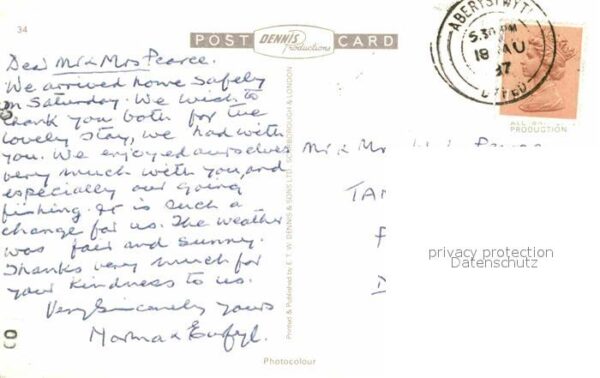 34
POST DENNIS Productions CARD
ABERYSTWYTH
5.30 PM
18 AU
87
DYFED
PRODUCTION
Dear Mr & Mrs Pearce.
We arrived home safely
on Saturday. We wish to
thank you both for the
lovely stay, we had with
you. We enjoyed ourselves
very much with you and
especially our going
fishing. It is such a
change for us. The weather
was fair and sunny.
Thanks very much for
your kindness to us.
Very Sincerely yours
Norma &
Printed & Published by E. T. W. DENNIS & SONS LTD. SCARBOROUGH & LONDON
Mr & Mrs
TAN
F
D
privacy protection
Datenschutz
Photocolour